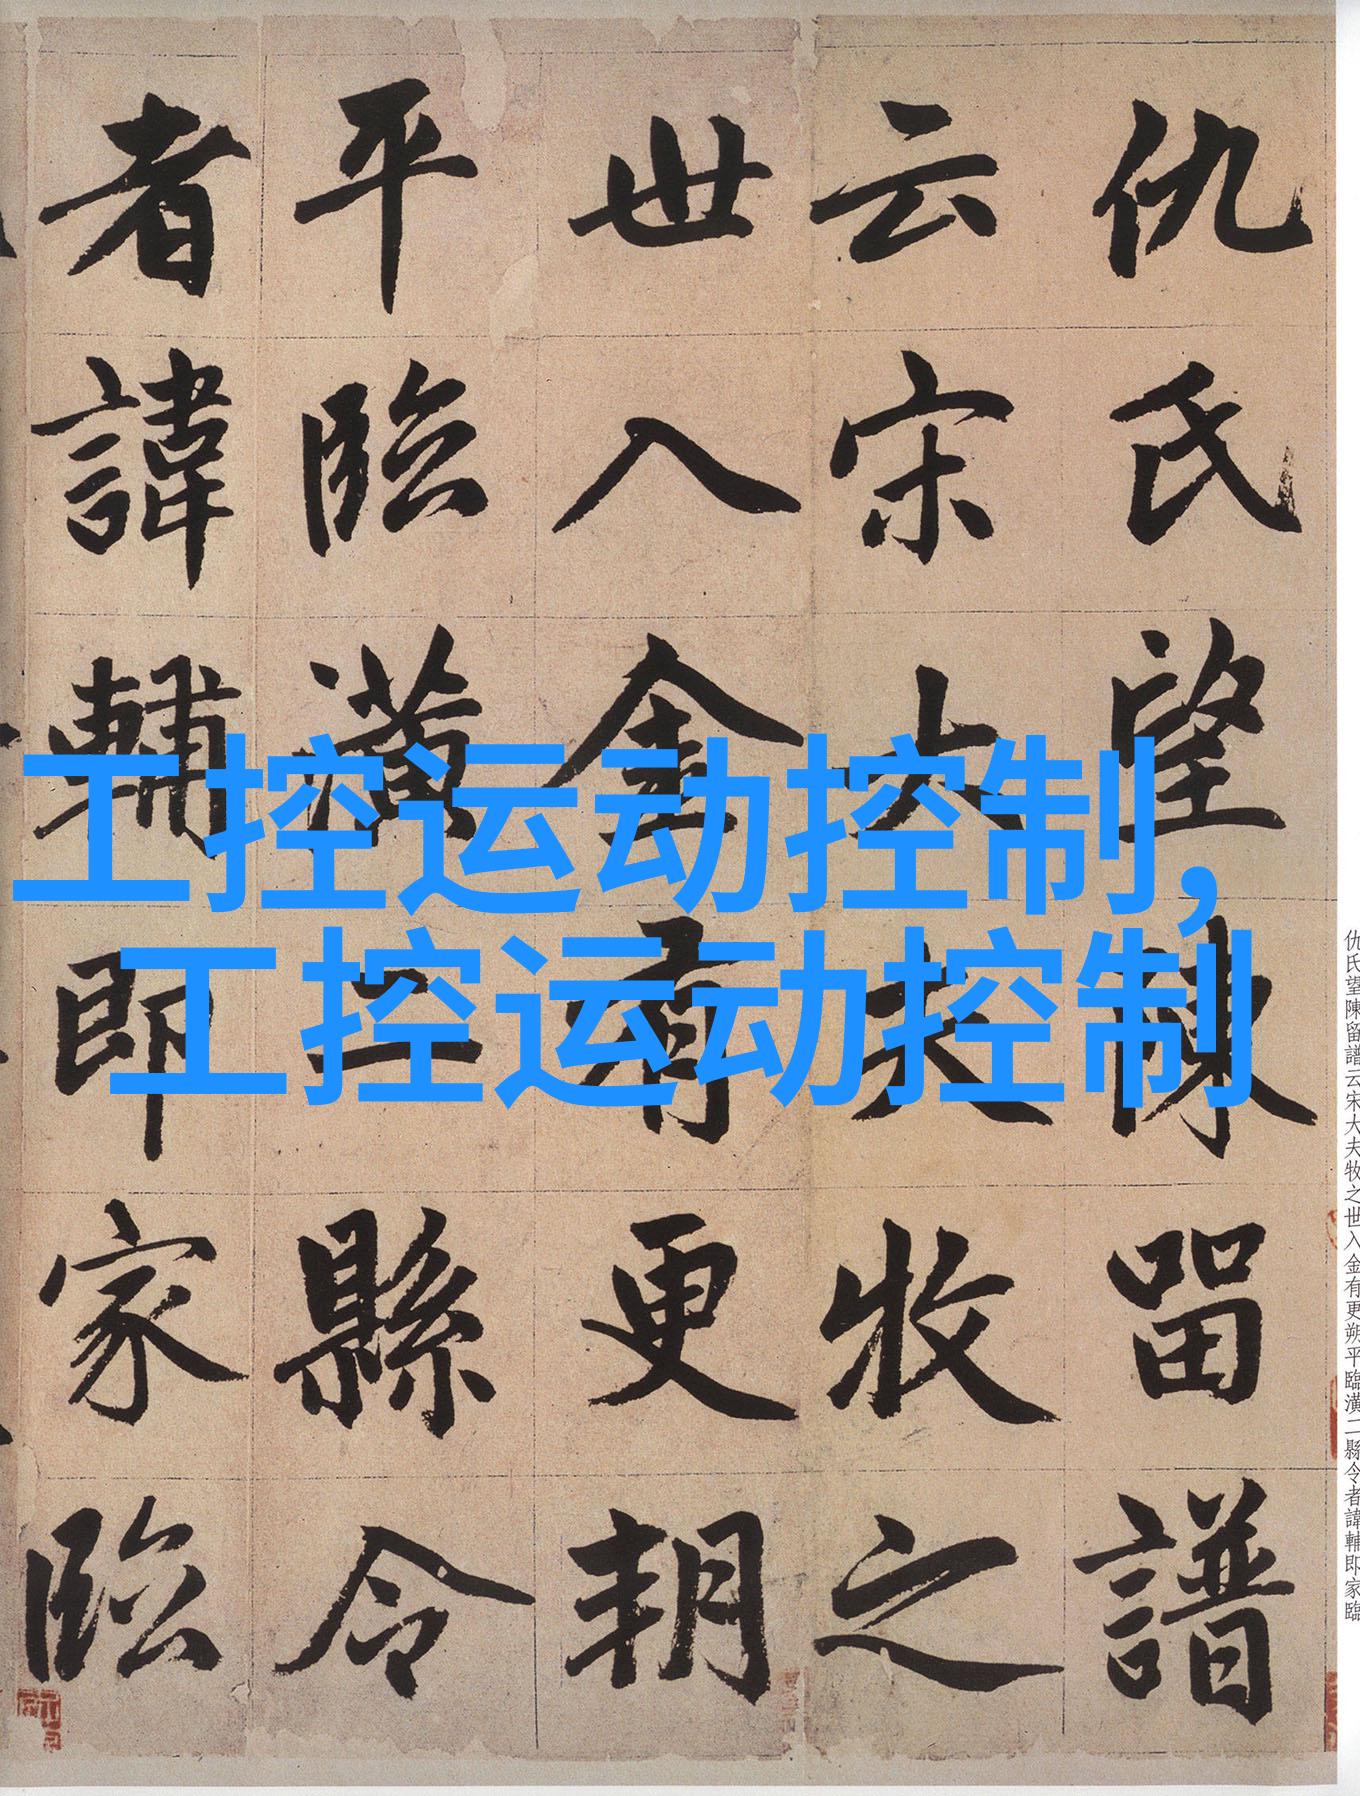 工控运动控制,
工控运动控制
仇氏望陳留譜
云宋大夫牧之
世入金有更朔
平臨潢二縣令
者諱輔即家臨
仇氏望陳留譜云宋大夫牧之世入金有更朔平臨潢二縣令者諱輔即家臨